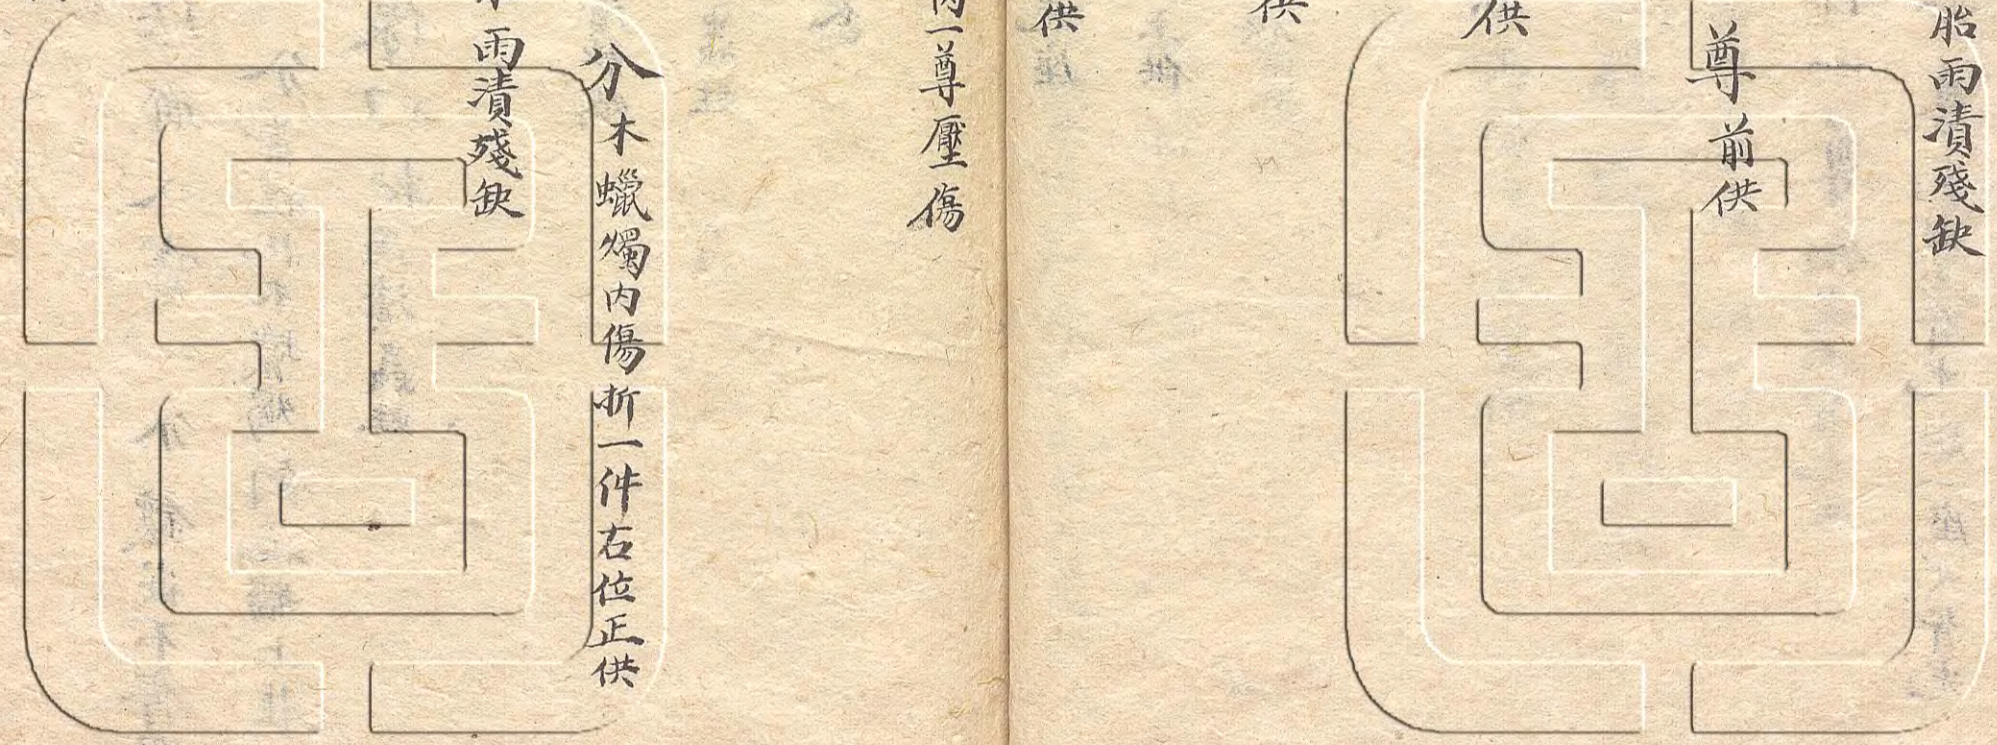 胎雨漬殘缺
尊前供
供
供
供
一尊壓傷
分木蠟燭內傷折一件右位正供
雨漬殘缺